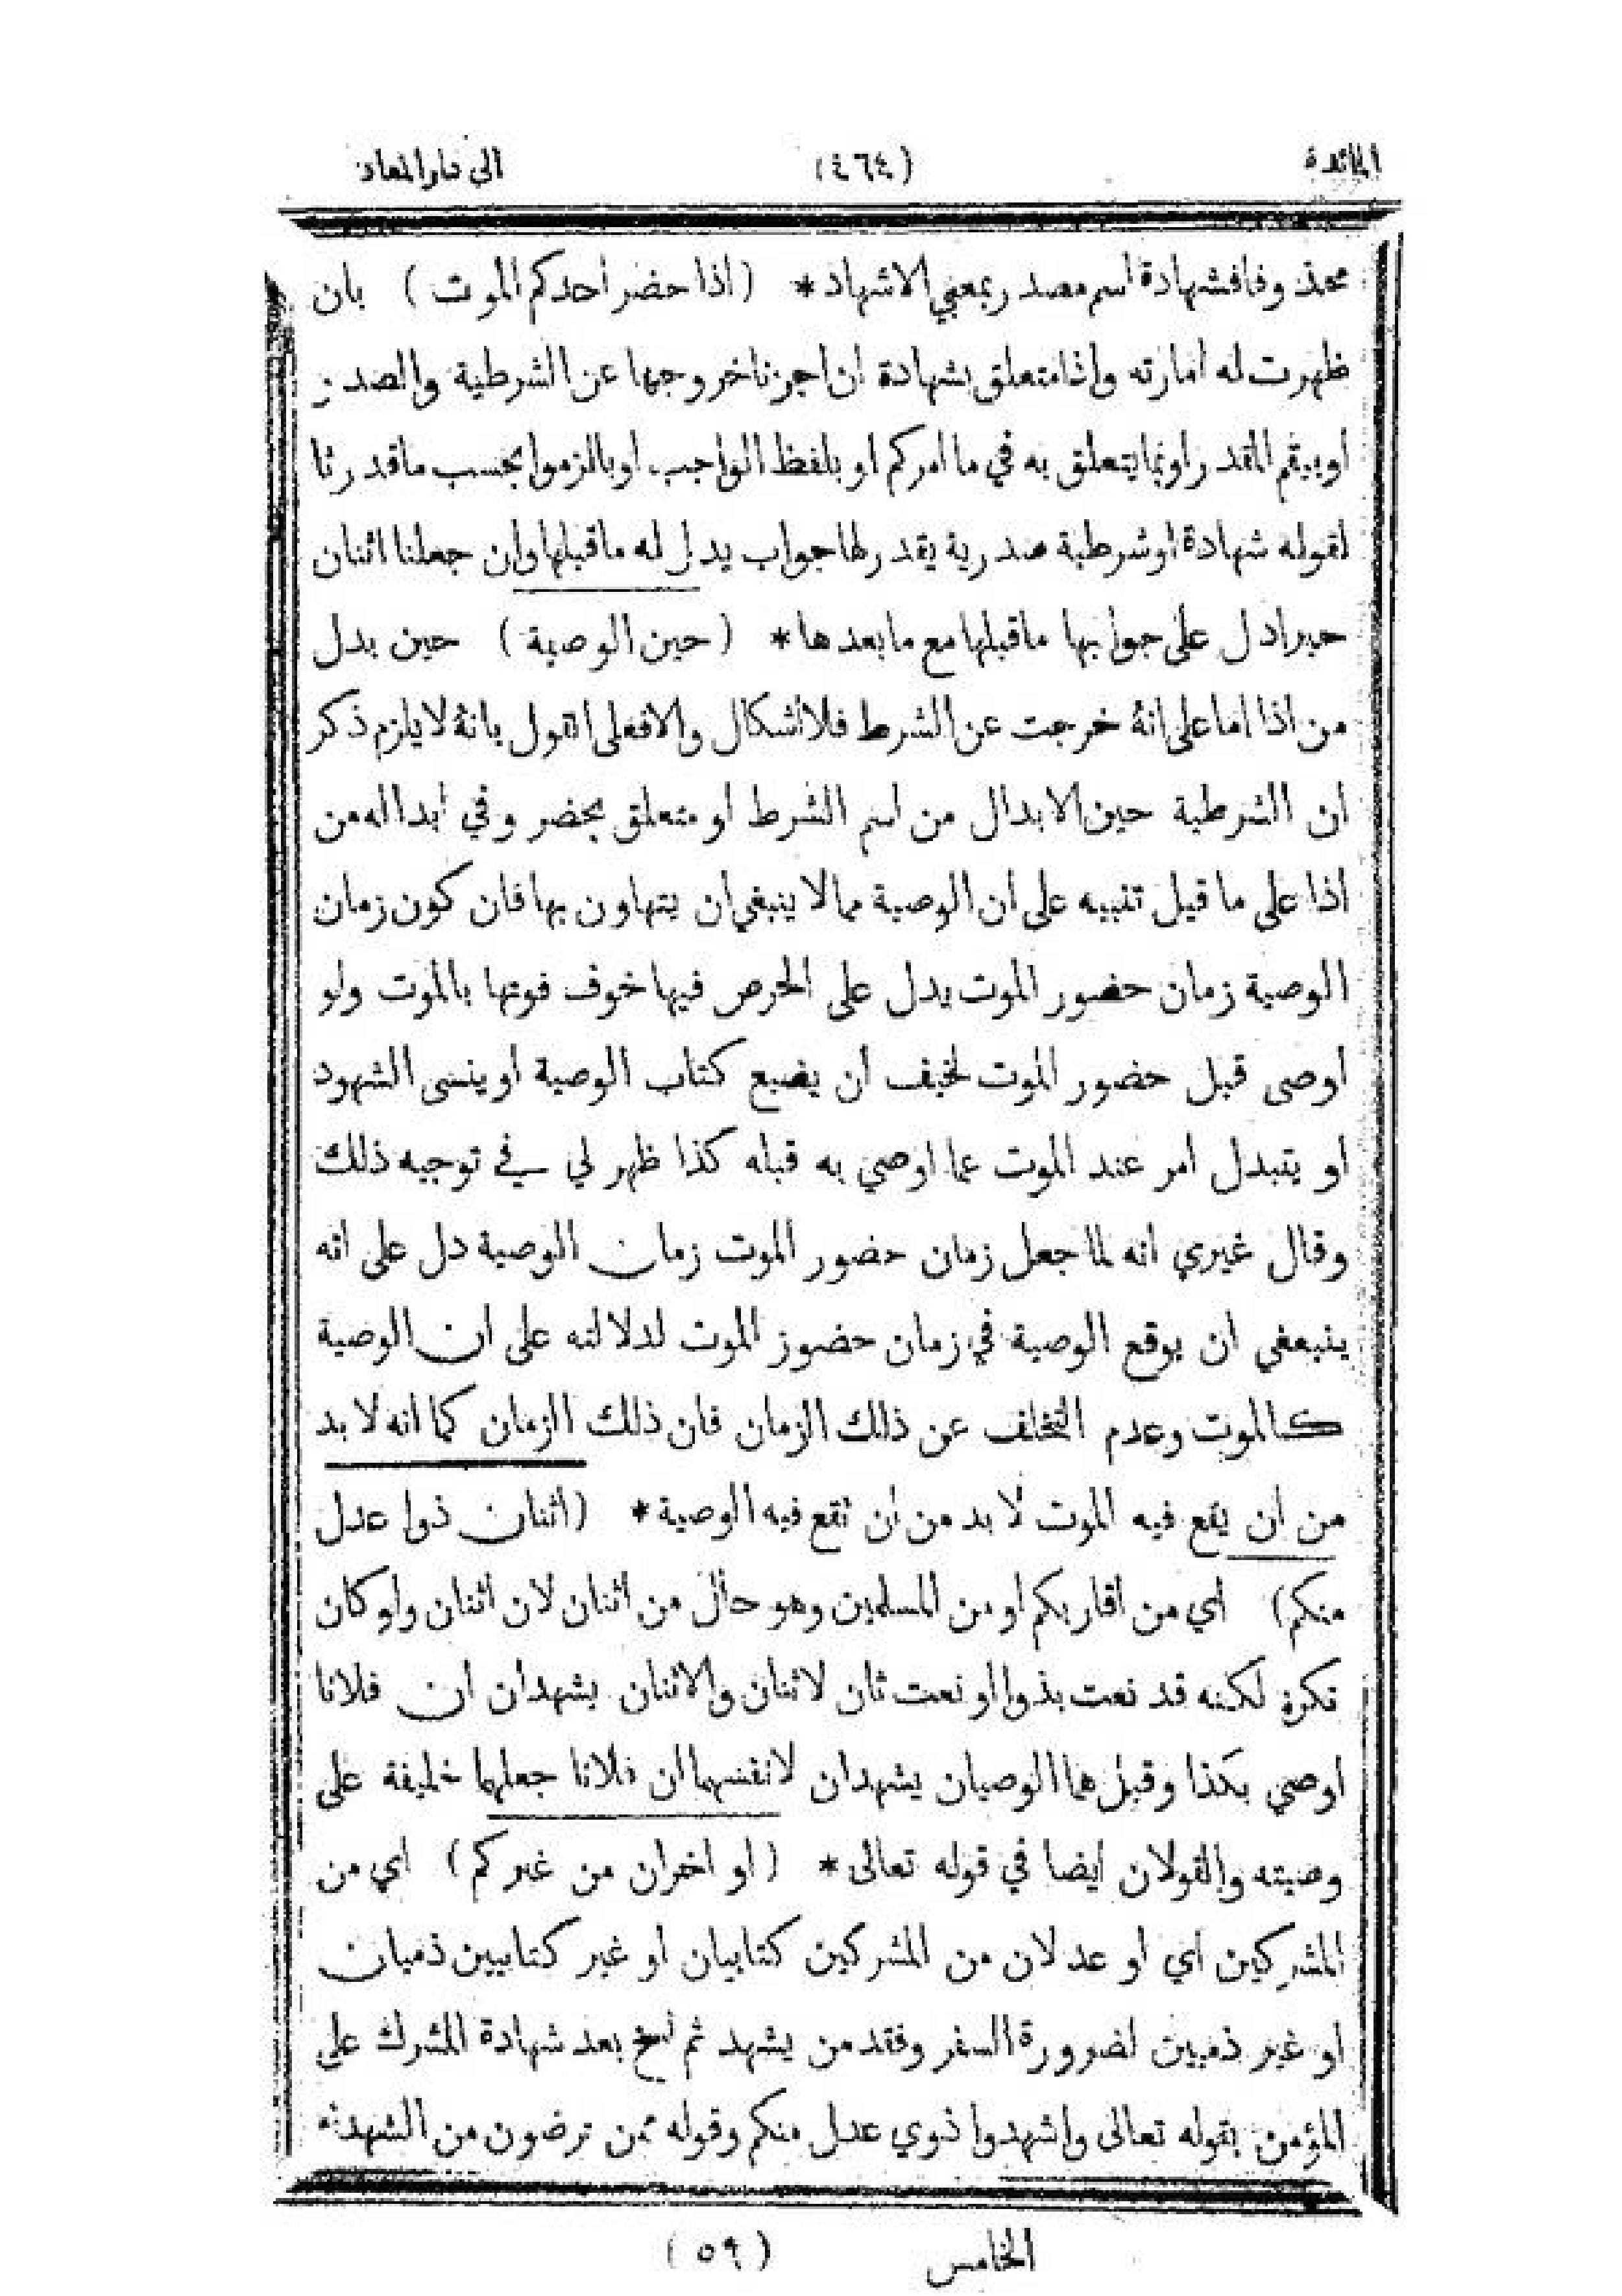 المائدة (٤٦٤) الى دار المعاد
محذوفا فشهادة اسم مصدر بمعنى الاشهاد * (اذا حضر احدكم الموت) بان
ظهرت له امارته واذا متعلق بشهادة ان اجزنا خروجها عن الشرطية والصدر
او بيقم المقدر او بما يتعلق به في ما امركم او بلفظ الواجب او بالزموا بحسب ما قدرنا
لقوله شهادة او شرطية صدرية يقدر لها جواب يدل له ما قبلها وان جعلنا اثنان
خبرا دل على جوابها ما قبلها مع ما بعدها * (حين الوصية) حين بدل
من اذا اما على انه خرجت عن الشرط فلا اشكال والا فعلى القول بانه لا يلزم ذكر
ان الشرطية حين الابدال من اسم الشرط او متعلق بحضر وفي ابداله من
اذا على ما قيل تنبيه على ان الوصية مما لا ينبغي ان يتهاون بها فان كون زمان
الوصية زمان حضور الموت يدل على الحرص فيها خوف فوتها بالموت ولو
اوصى قبل حضور الموت لخيف ان يضيع كتاب الوصية او ينسى الشهود
او يتبدل امر عند الموت عما اوصي به قبله كذا ظهر لي في توجيه ذلك
وقال غيري انه لما جعل زمان حضور الموت زمان الوصية دل على انه
ينبغي ان يوقع الوصية في زمان حضور الموت لدلالته على ان الوصية
كالموت وعدم التخلف عن ذلك الزمان فان ذلك الزمان كما انه لا بد
من ان يقع فيه الموت لا بد من ان تقع فيه الوصية * (اثنان ذوا عدل
منكم) اي من اقاربكم او من المسلمين وهو حال من اثنان لان اثنان ولو كان
نكرة لكنه قد نعت بذوا او نعت ثان لاثنان والاثنان يشهدان ان فلانا
اوصي بكذا وقيل هما الوصيان يشهدان لانفسهما ان فلانا جعلهما خليفة على
وصيته والقولان ايضا في قوله تعالى * (او اخران من غيركم) اي من
المشركين اي او عدلان من المشركين كتابيان او غير كتابيين ذميان
او غير ذميين لضرورة السفر وفقد من يشهد ثم نسخ بعد شهادة المشرك على
المؤمن بقوله تعالى واشهدوا ذوي عدل منكم وقوله ممن ترضون من الشهداء
الخامس (٥٩)